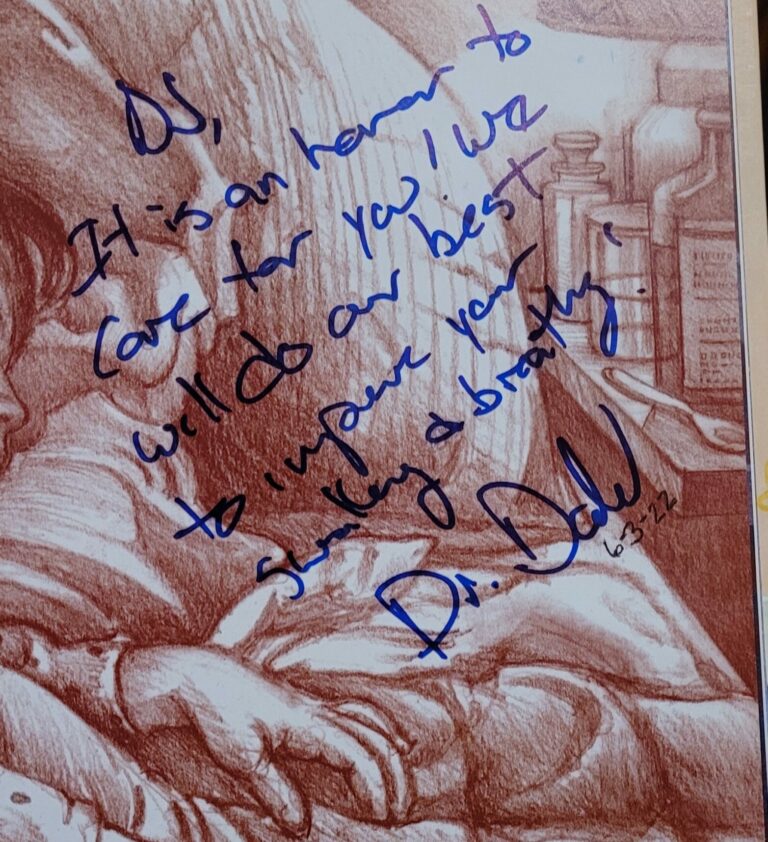 DJ,
It is an honor to
care for you! We
will do our best
to improve your
swallowing & breathing!
Dr. Dad
6-3-22